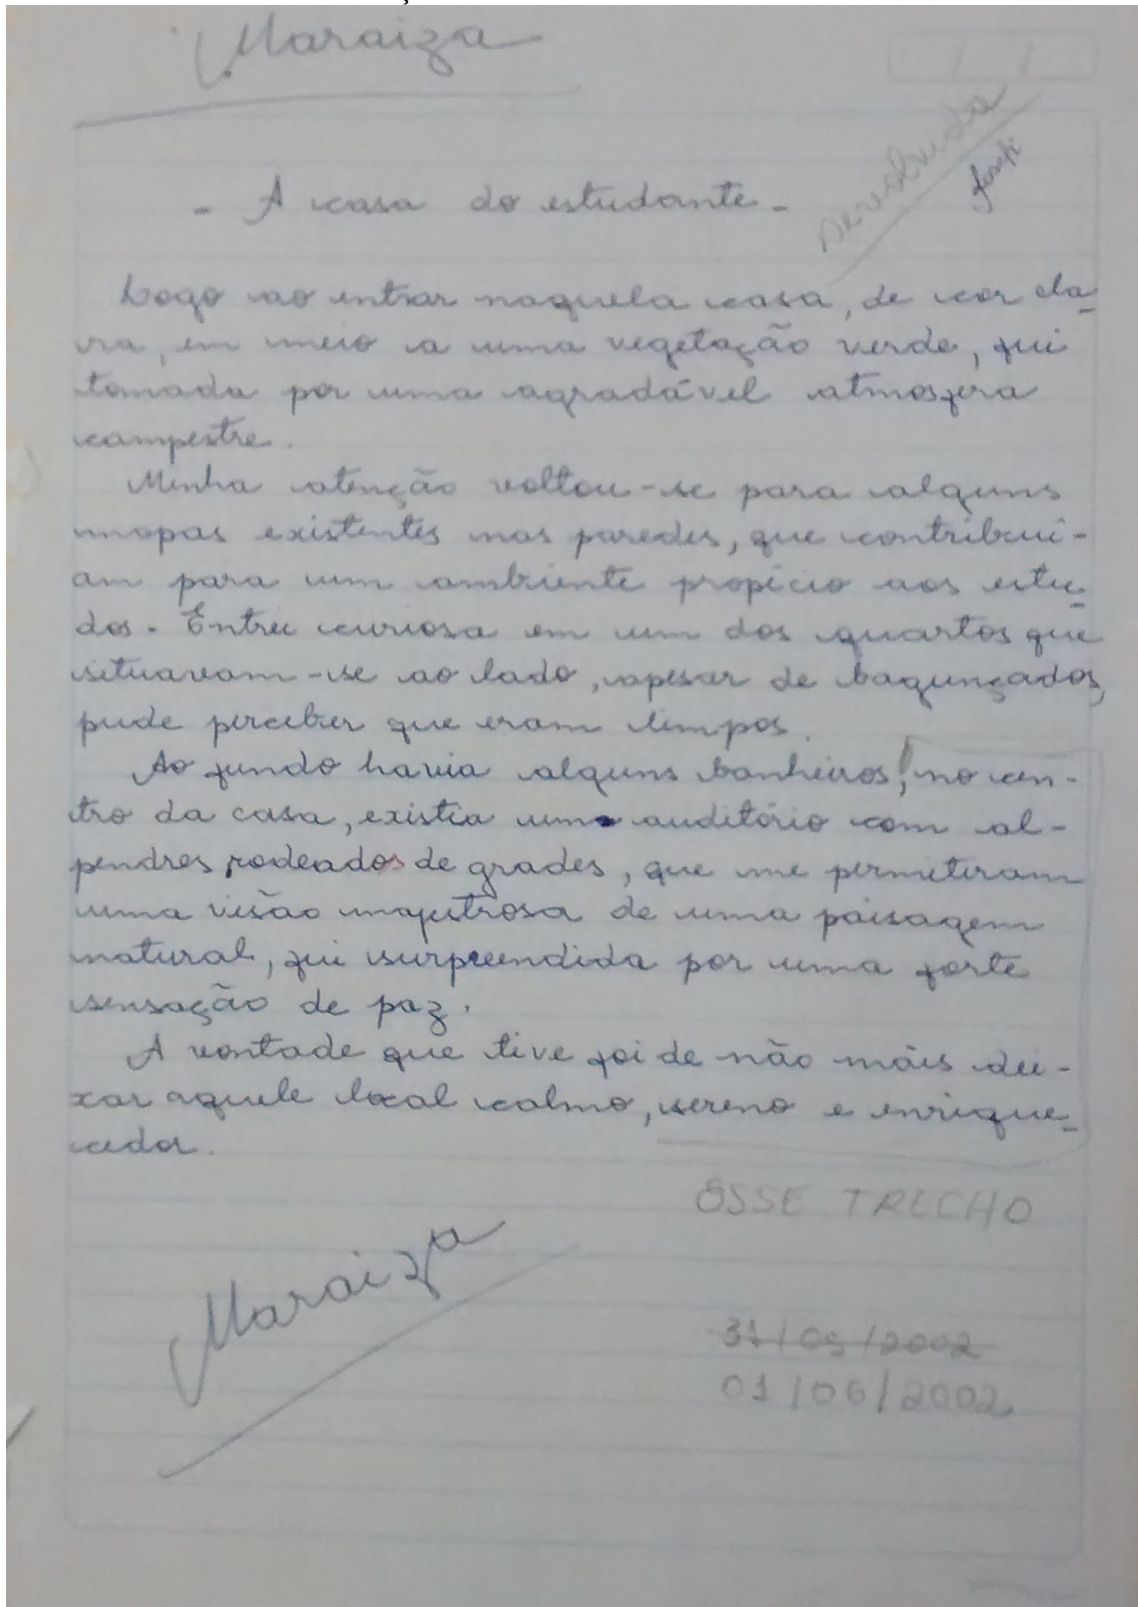 Maraiza
Devolvida
- A casa do estudante -
Logo ao entrar naquela casa, de cor cla-
ra, em meio a uma vegetação verde, fui
tomada por uma agradável atmosfera
campestre.
Minha atenção voltou-se para alguns
mapas existentes nas paredes, que contribuí-
am para um ambiente propício aos estu-
dos. Entrei curiosa em um dos quartos que
situavam-se ao lado, apesar de bagunçados,
pude perceber que eram limpos.
Ao fundo havia alguns banheiros, no cen-
tro da casa, existia um auditório com al-
pendres rodeados de grades, que me permitiram
uma visão majestrosa de uma paisagem
natural, fui surpreendida por uma forte
sensação de paz.
A vontade que tive foi de não mais dei-
xar aquele local calmo, sereno e enrique-
cedor.
ESSE TRECHO
Maraiza
31/05/2002
01/06/2002